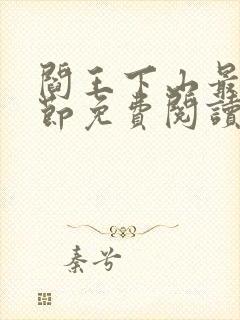 閻王下山最
節免費閱讀
秦兮